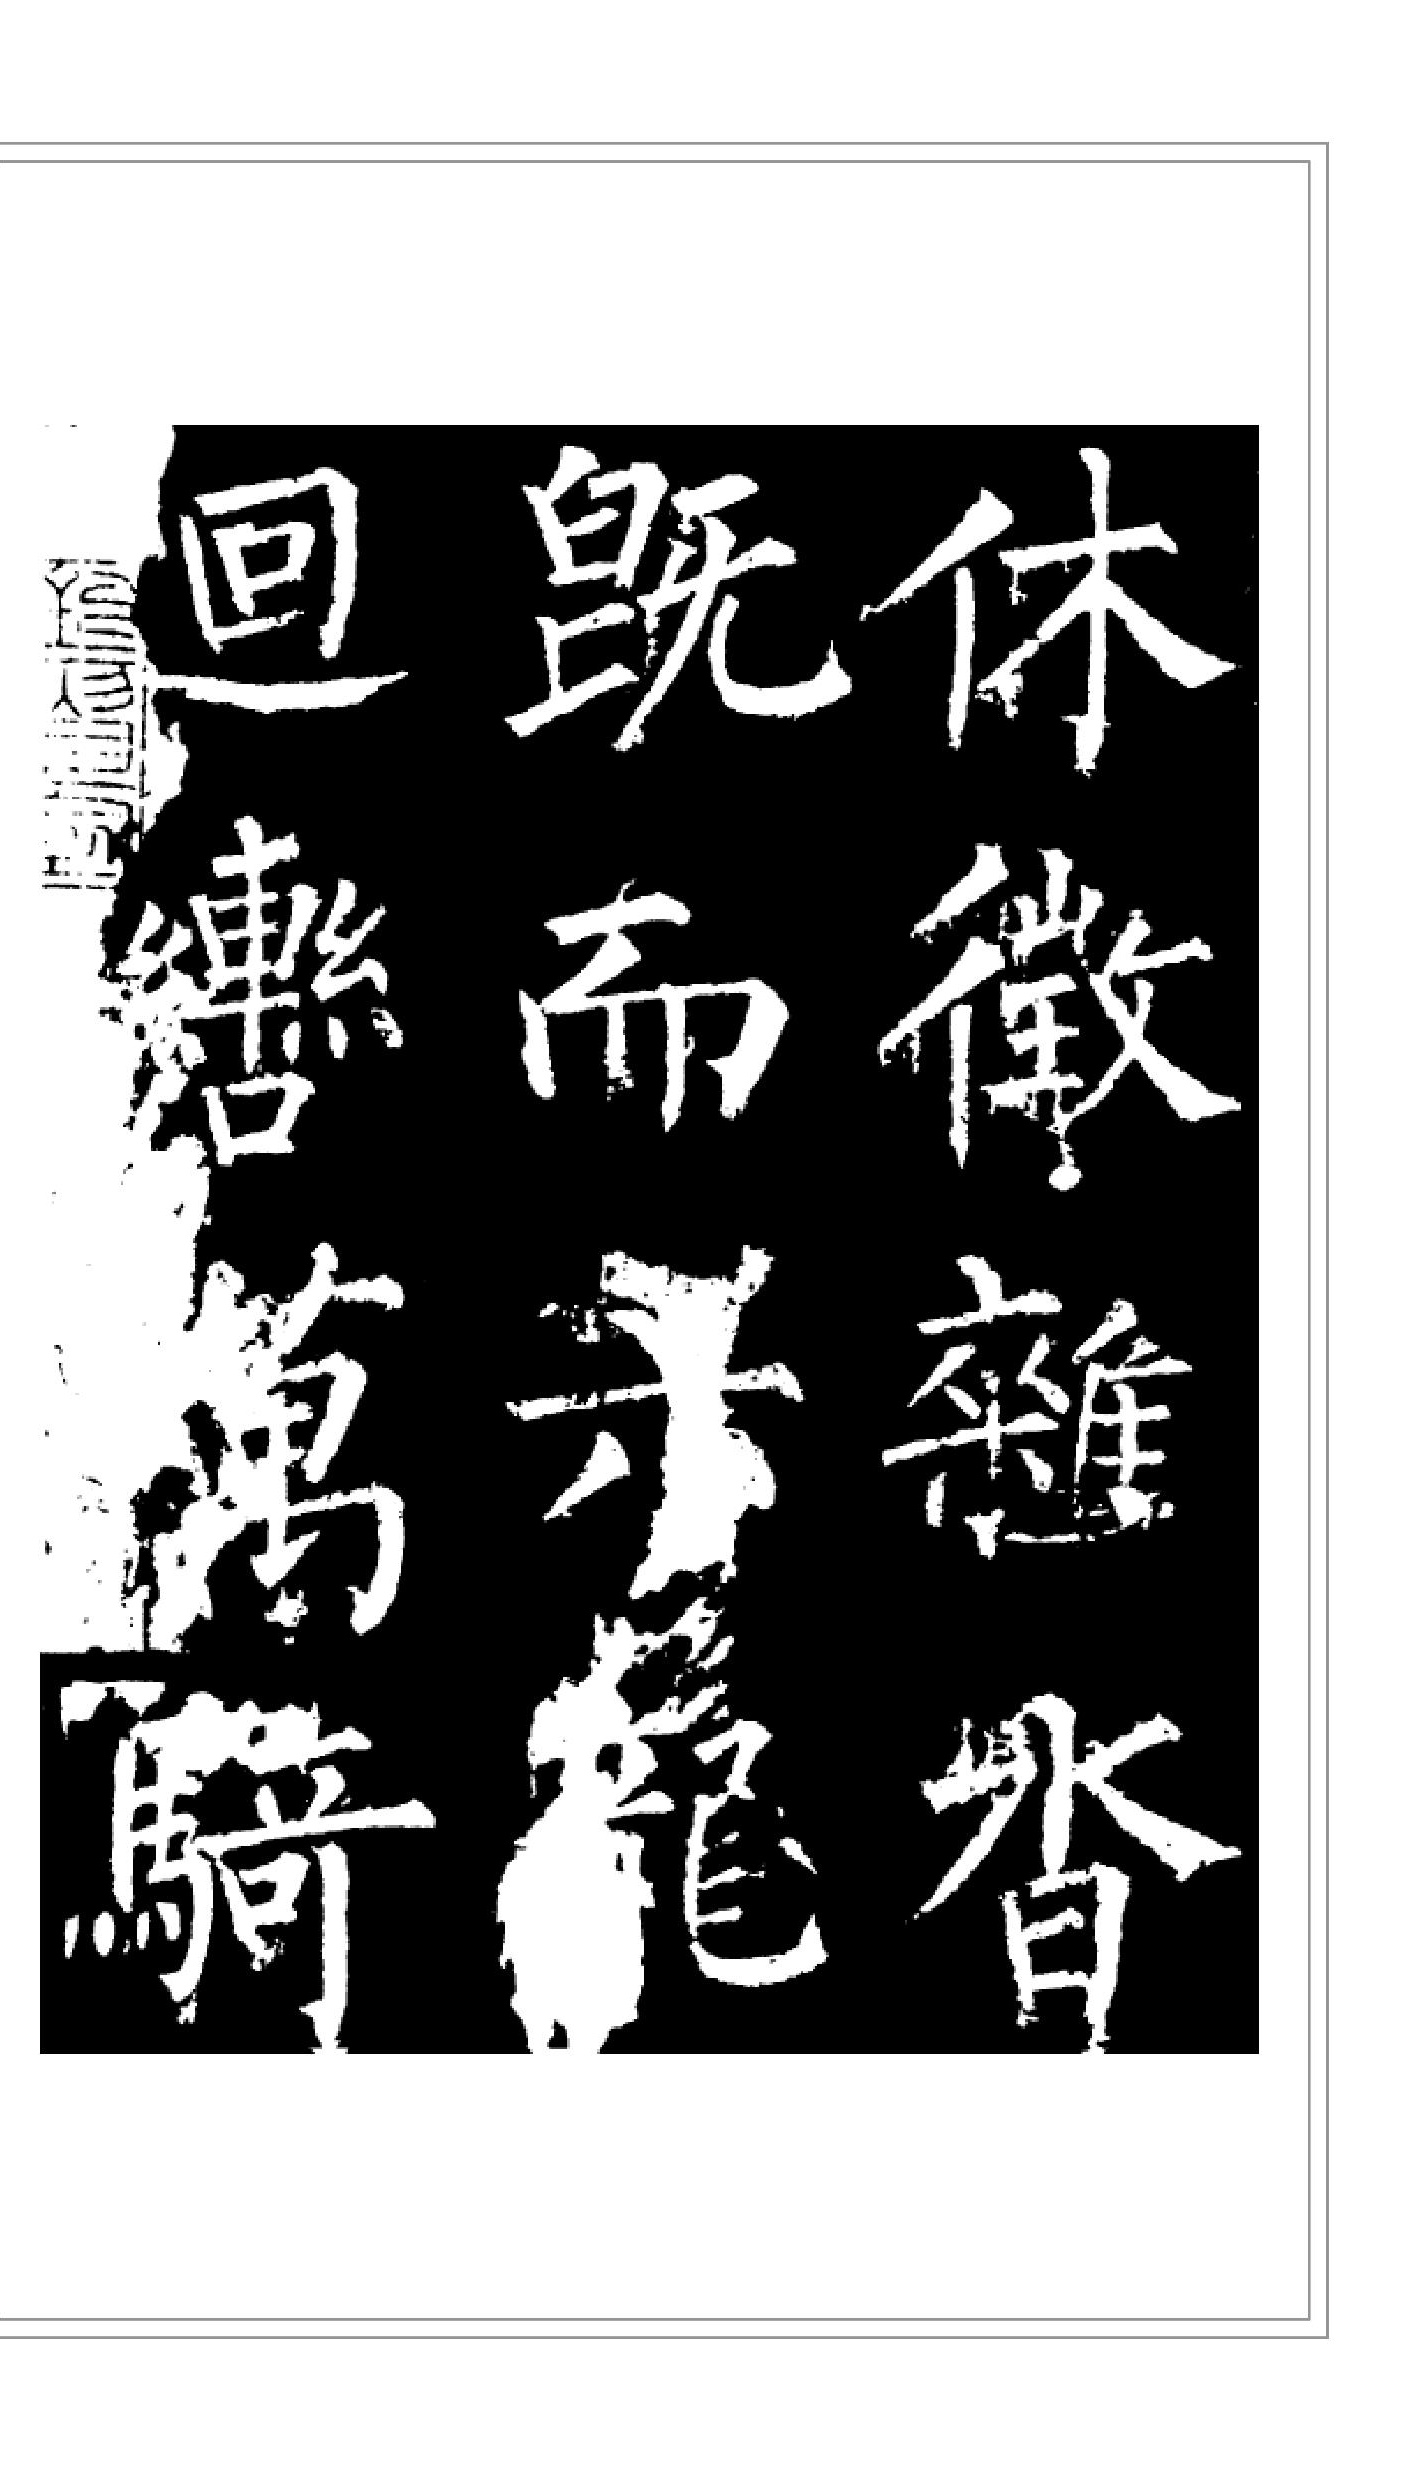 休徵雜沓
既而六龍
迴轡萬騎